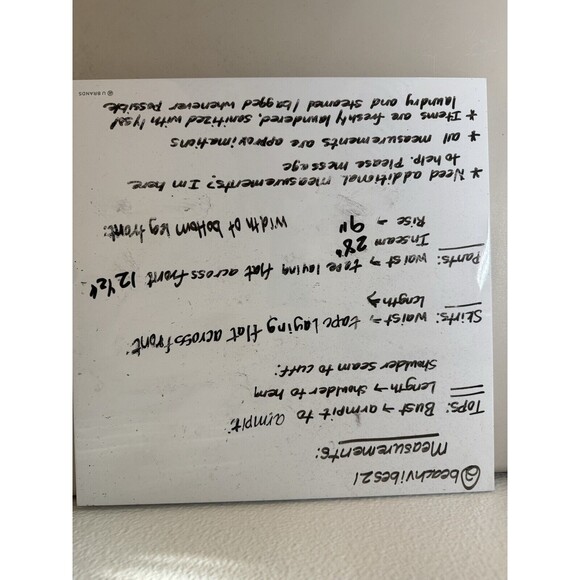 @beachvibes21
Measurements:
Tops: Bust → armpit to armpit:
Length → shoulder to hem
Shoulder seam to cuff:
Skirts: waist → tape laying flat across front:
Length →
Pants: waist → tape laying flat across front 12 1/2"
Inseam 28"
Rise → 9" Width of bottom leg front:
* Need additional measurements? I'm here
to help. Please message
* all measurements are approximations
* Items are freshly laundered, sanitized with lysol
laundry and steamed / bagged whenever possible
U BRANDS